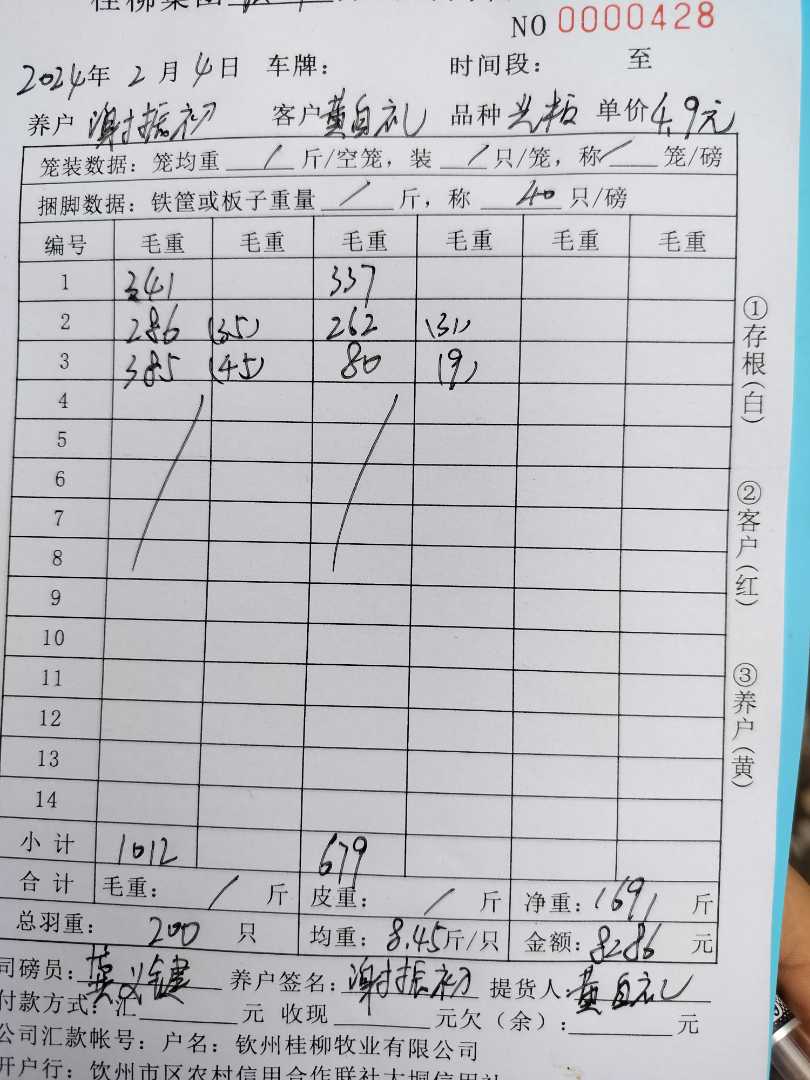 桂柳集团
NO 0000428
2024年 2月 4日 车牌： 时间段： 至
养户 谢振初 客户 黄自礼 品种 单价 4.9元
笼装数据：笼均重 / 斤/空笼，装 / 只/笼，称 / 笼/磅
捆脚数据：铁筐或板子重量 / 斤，称 40 只/磅
编号 毛重 毛重 毛重 毛重 毛重 毛重
1 341 337
2 286 (35) 262 (31)
3 385 (45) 80 (9)
4
5
6
7
8
9
10
11
12
13
14
小计 1012 679
合计 毛重： / 斤 皮重： / 斤 净重：1691 斤
总羽重： 200 只 均重：8.45斤/只 金额：8286 元
司磅员： 养户签名：谢振初 提货人 黄自礼
付款方式：汇 元 收现 元欠（余）： 元
公司汇款帐号：户名：钦州桂柳牧业有限公司
开户行：钦州市区农村信用合作联社大垌信用社
①存根（白）
②客户（红）
③养户（黄）